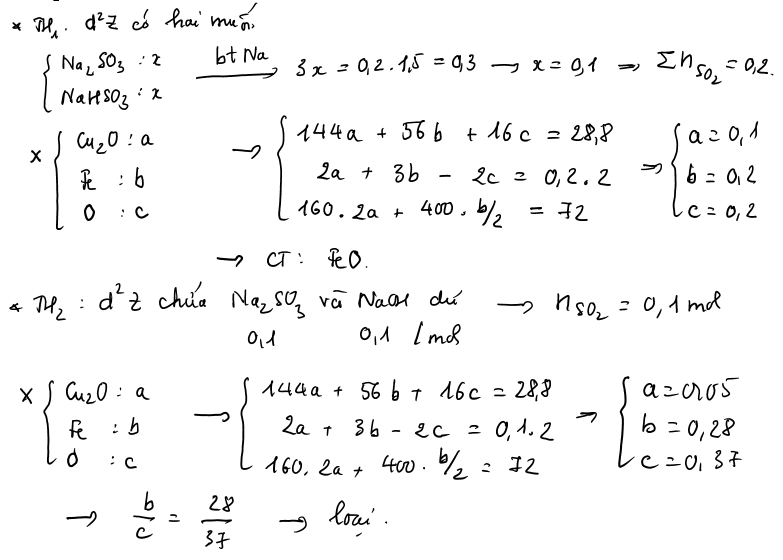 * TH₁. d²Z có hai muối.
{ Na₂SO₃ : x
NaHSO₃ : x
bt Na → 3x = 0,2.1,5 = 0,3 → x = 0,1 ⇒ Σn_SO₂ = 0,2.
X { Cu₂O : a
Fe : b
O : c
→ { 144a + 56b + 16c = 28,8
2a + 3b - 2c = 0,2.2
160.2a + 400.b/2 = 72
⇒ { a = 0,1
b = 0,2
c = 0,2
→ CT : FeO.
* TH₂ : d²Z chứa Na₂SO₃ và NaOH dư → n_SO₂ = 0,1 mol
0,1 0,1 [mol
X { Cu₂O : a
Fe : b
O : c
→ { 144a + 56b + 16c = 28,8
2a + 3b - 2c = 0,1.2
160.2a + 400.b/2 = 72
⇒ { a = 0,05
b = 0,28
c = 0,37
→ b/c = 28/37 → loại.